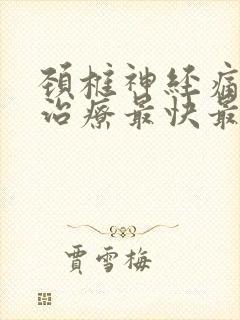 頚椎神経痛
治療最快最
賈雪梅